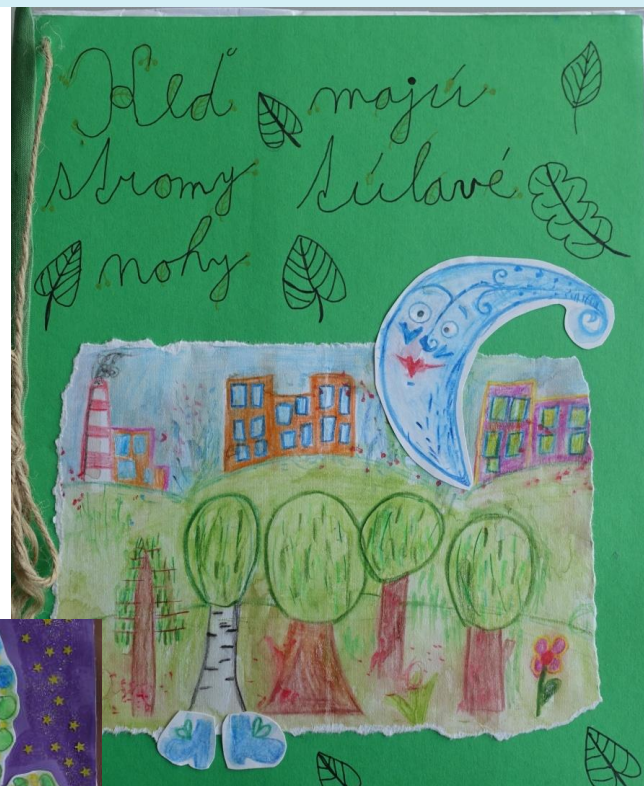 Keď majú
stromy túlavé
nohy